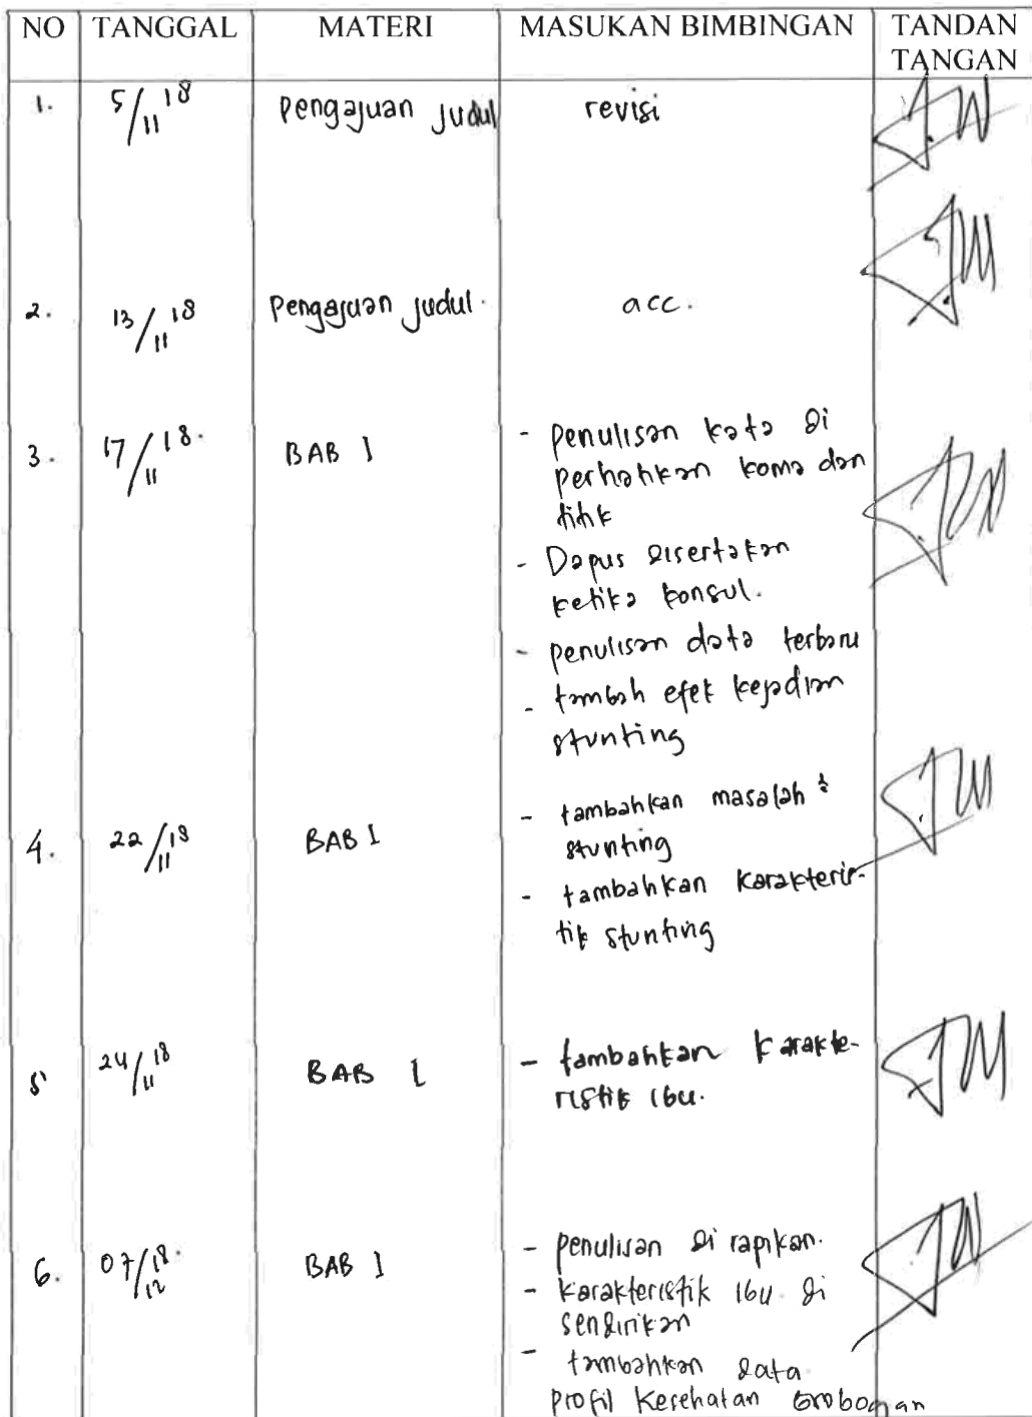 NO TANGGAL MATERI MASUKAN BIMBINGAN TANDAN
TANGAN
1. 5/11 18 Pengajuan judul revisi
2. 13/11 18 Pengajuan judul. acc.
3. 17/11 18. BAB I - penulisan kata di
perhatikan koma dan
titik
- Dapus disertakan
ketika konsul.
- penulisan data terbaru
- tambah efek kejadian
stunting
4. 22/11 18 BAB I - tambahkan masalah ²
stunting
- tambahkan karakteris-
tik stunting
5 24/11 18 BAB I - tambahkan karakte-
ristik ibu.
6. 07/12 18. BAB I - penulisan di rapikan.
- karakteristik ibu di
sendirikan
- tambahkan data
profil kesehatan Grobogan